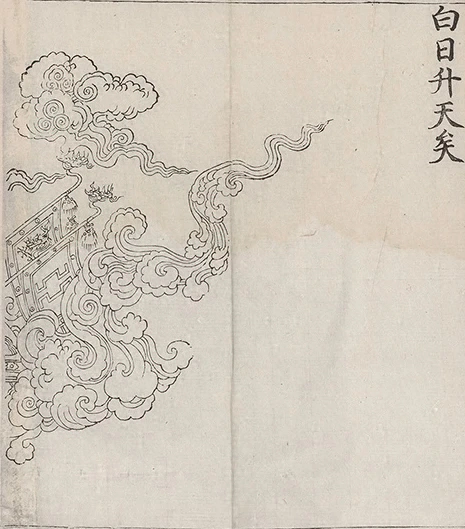 白日升天矣